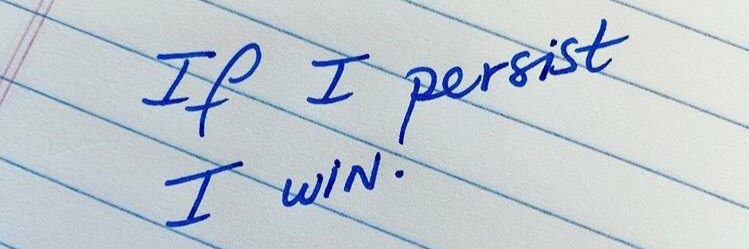 If I persist
I WIN.